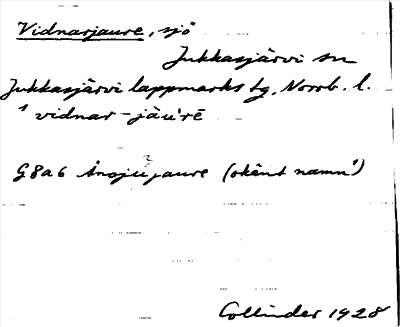 Vidnarjaure, sjö
Jukkasjärvi sn
Jukkasjärvi lappmarks tg. Norrb. l.
' vidnar-jäu'rē
G 8 a 6 Ånojújaure (okänt namn')
Collinder 1928